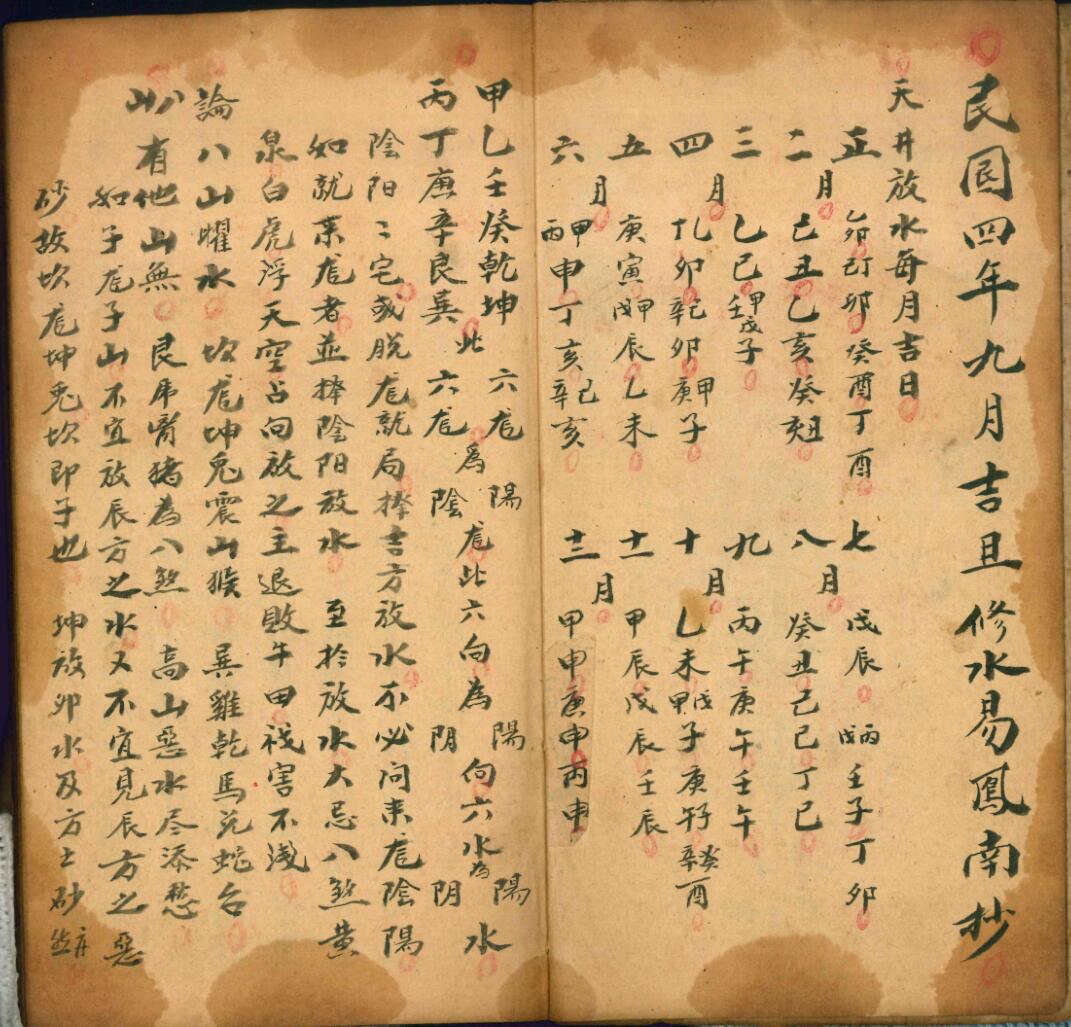 民囯四年九月吉旦修水易鳳南抄
天井放水每月吉日
正月 卯己丁卯癸酉丁酉
二月 己丑乙亥癸丑
三月 乙巳壬甲戊子
四月 卯辛卯庚甲子
五月 庚寅戊甲辰乙未
六月 丙甲申丁亥辛己亥
七月 戊辰戊丙壬子丁卯
八月 癸丑己巳丁巳
九月 丙午庚午壬午
十月 乙未甲戊子庚午子辛癸酉
十一月 甲辰戊辰壬辰
十二月 甲申庚申丙申
甲乙壬癸乾坤此六尨為陽尨此六向為陽向六水為陽水
丙丁庚辛艮巽 六尨陰 阴 阴
陰阳二宅或脱尨就局擇吉方放水不必问来尨陰陽
如就来尨者並擇陰阳放水 至於放水大忌八煞黄
泉白虎浮天空占向放之主退敗牛田祸害不浅
論八山曜水 坎尨坤兎震山猴 巽雞乾馬兑蛇台
八山 有他山無 艮虎离猪為八煞 高山惡水尽添愁
如子尨子山不宜放辰方之水又不宜見辰方之惡
砂故坎尨坤兎坎即子也 坤放卯水及方土砂